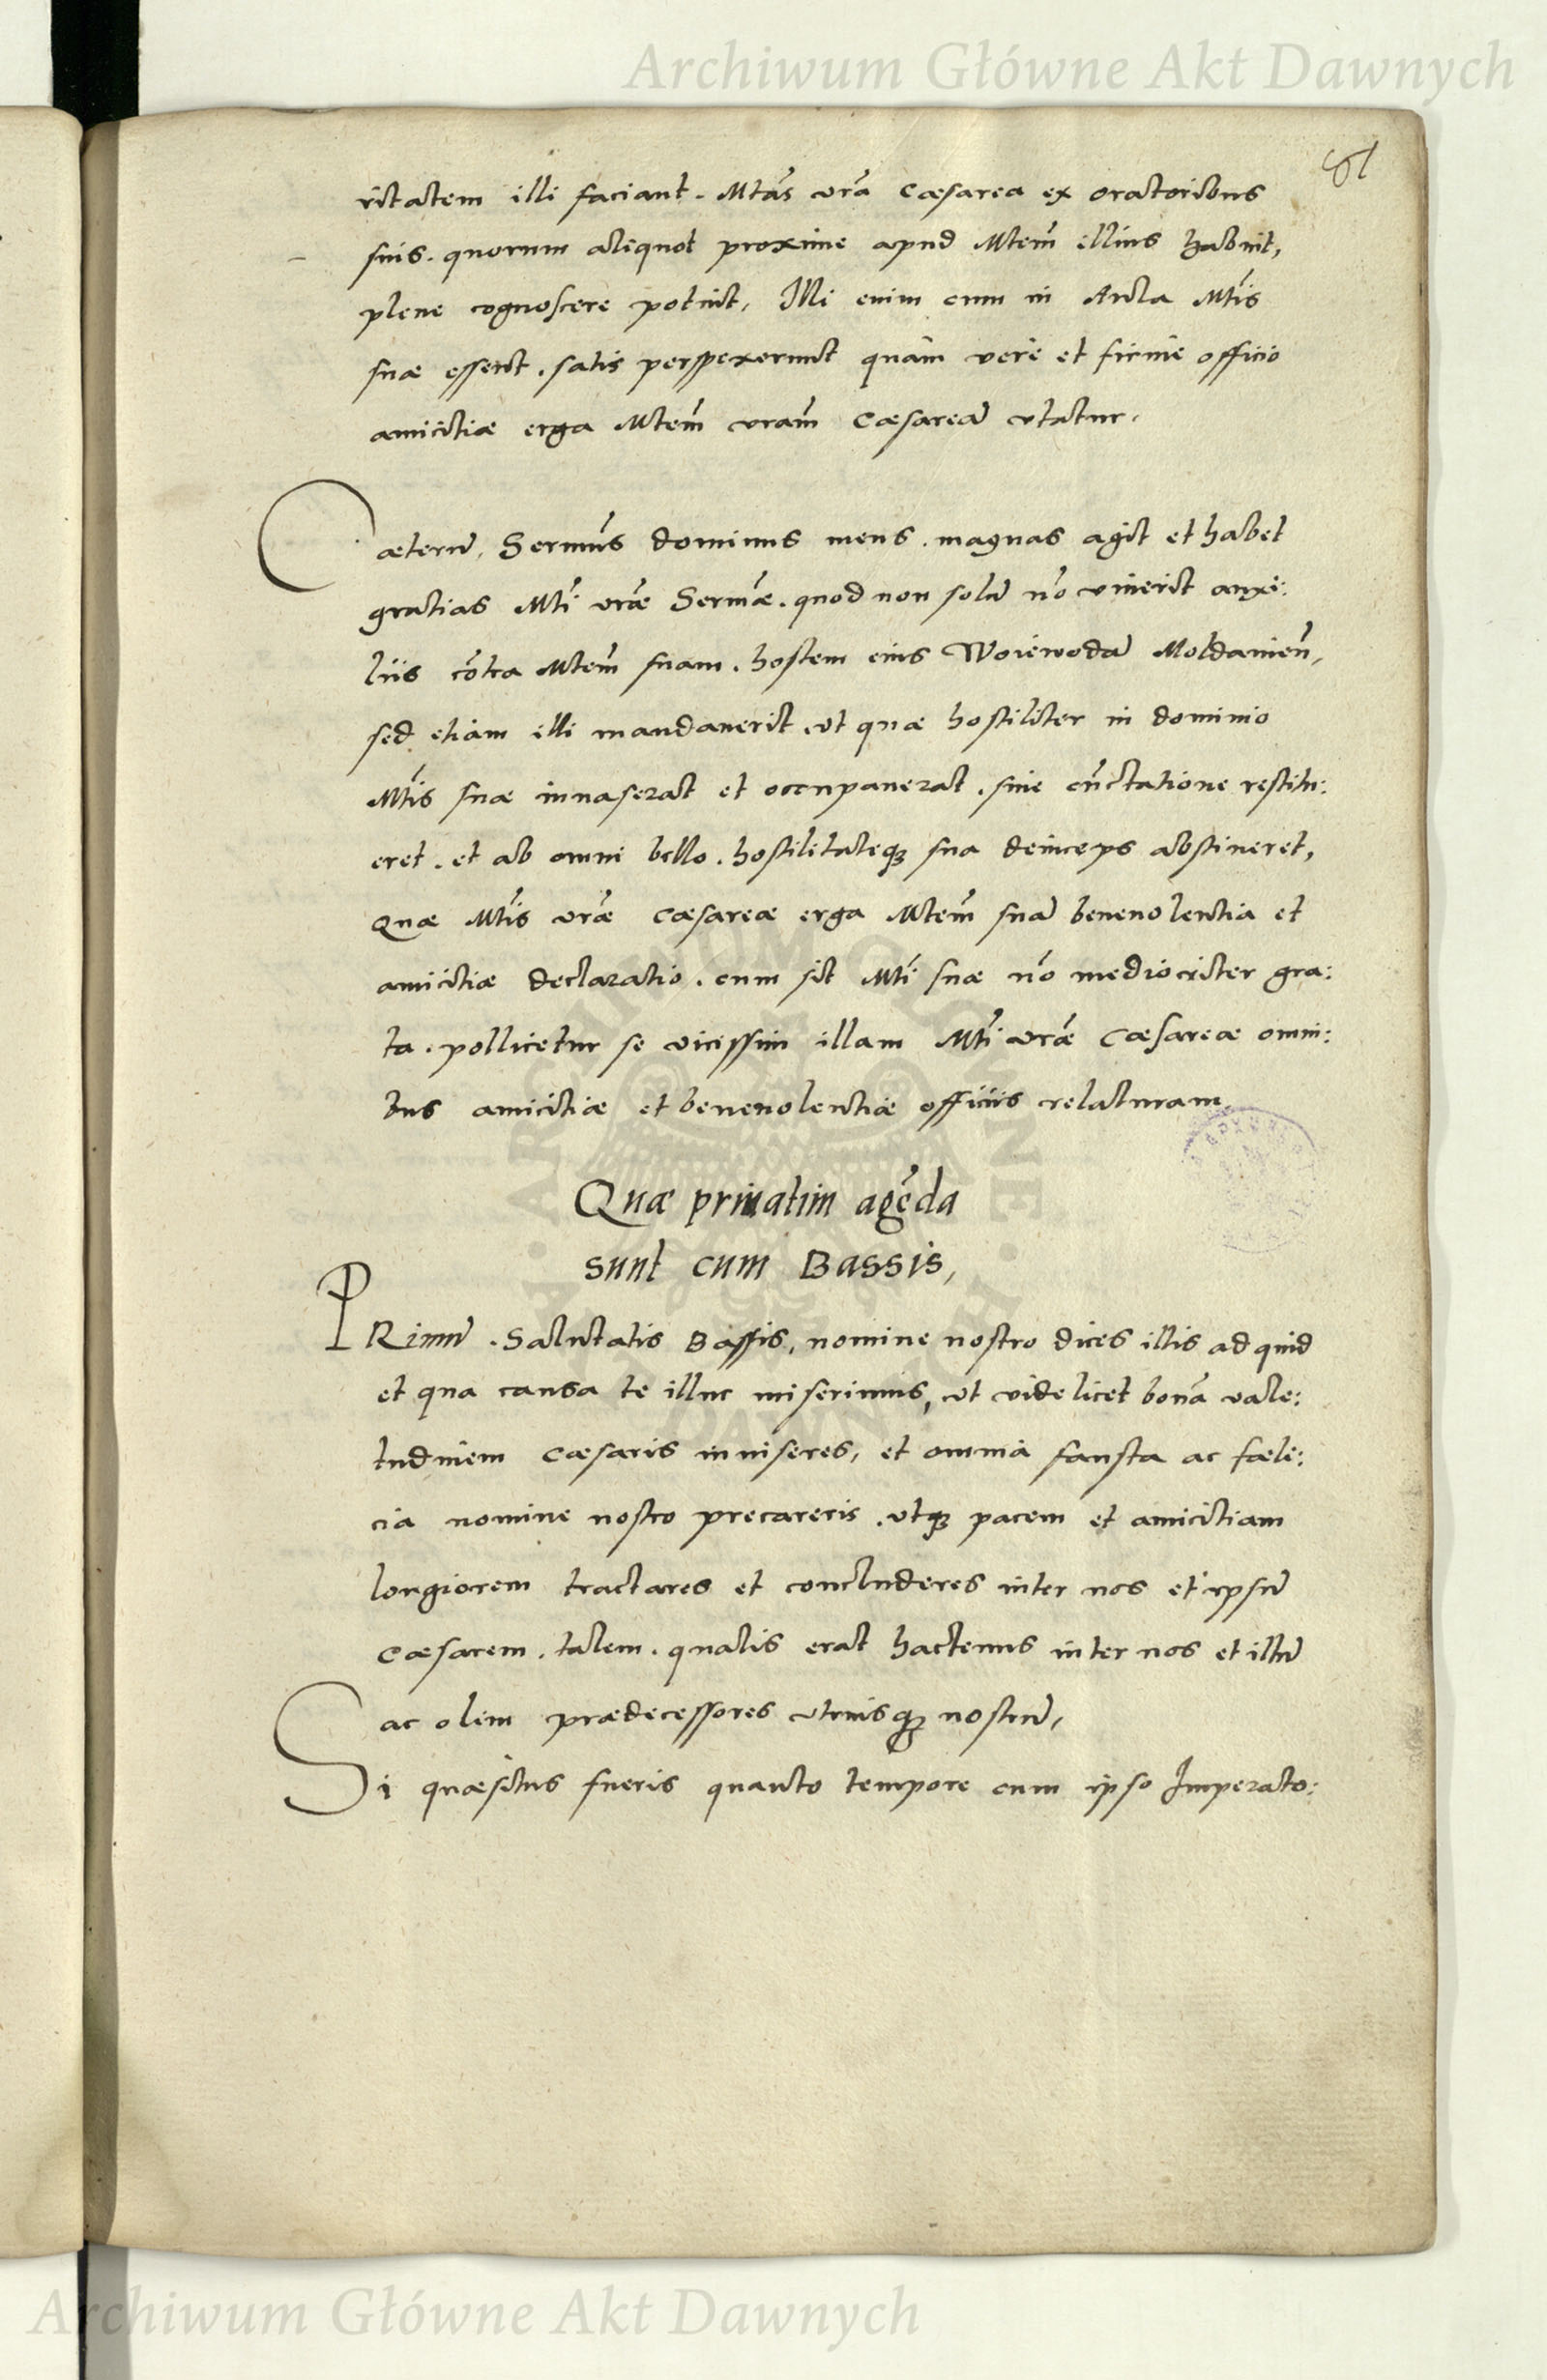 Archiwum Główne Akt Dawnych
81
ritatem illi faciant. Mtas vrã Cæsarea ex oratoribus
suis. quorum aliquot proxime apud Mtem̃ illius habuit,
plene cognoscere potuit, Illi enim cum in Aula Mtĩs
suæ essent. satis perspexerunt quam vere et firme officio
amicitiæ erga Mtem̃ vram̃ Cæsareã vtatur.
Cæterũ, Sermũs dominus meus. magnas agit et habet
gratias Mtĩ vræ̃ Sermæ̃. quod non solũ nõ iuuerit auxi:
liis cõtra Mtem̃ suam. hostem eius Woiewodã Moldauieñ,
sed etiam illi mandauerit, vt quæ hostiliter in dominio
Mtĩs suæ inuaserat et occupauerat. sine cũctatione restitu:
eret. et ab omni bello. hostilitateqꝫ sua deinceps abstineret,
Quæ Mtĩs vræ̃ Cæsareæ erga Mtem̃ suã beneuolentia et
amicitiæ declaratio. cum sit Mtĩ suæ nõ mediocriter gra:
ta. pollicetur se vicissim illam Mtĩ vræ̃ Cæsareæ omni:
bus amicitiæ et beneuolentiæ officiis relaturam
Quæ priuatim agẽda
sunt cum Bassis,
PRimũ. Salutatis Bassis, nomine nostro dices illis ad quid
et qua causa te illuc miserimus, vt videlicet bonã vale:
tudinem Cæsaris inuiseres, et omnia fausta ac fæli:
cia nomine nostro precareris. vtqꝫ pacem et amicitiam
longiorem tractares et concluderes inter nos et ipsũ
Cæsarem. talem. qualis erat hactenus inter nos et illũ
ac olim prædecessores vtriusqꝫ nostrũ,
Si quæsitus fueris quanto tempore cum ipso Imperato:
Archiwum Główne Akt Dawnych